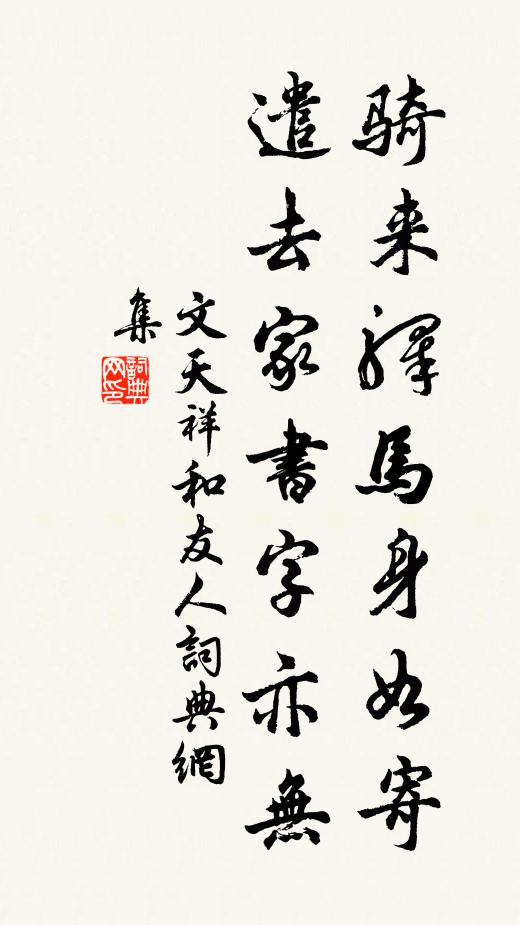 骑来驿馬身如寄
遣去家書字亦無
文天祥和友人詞典網
集
詞典网印